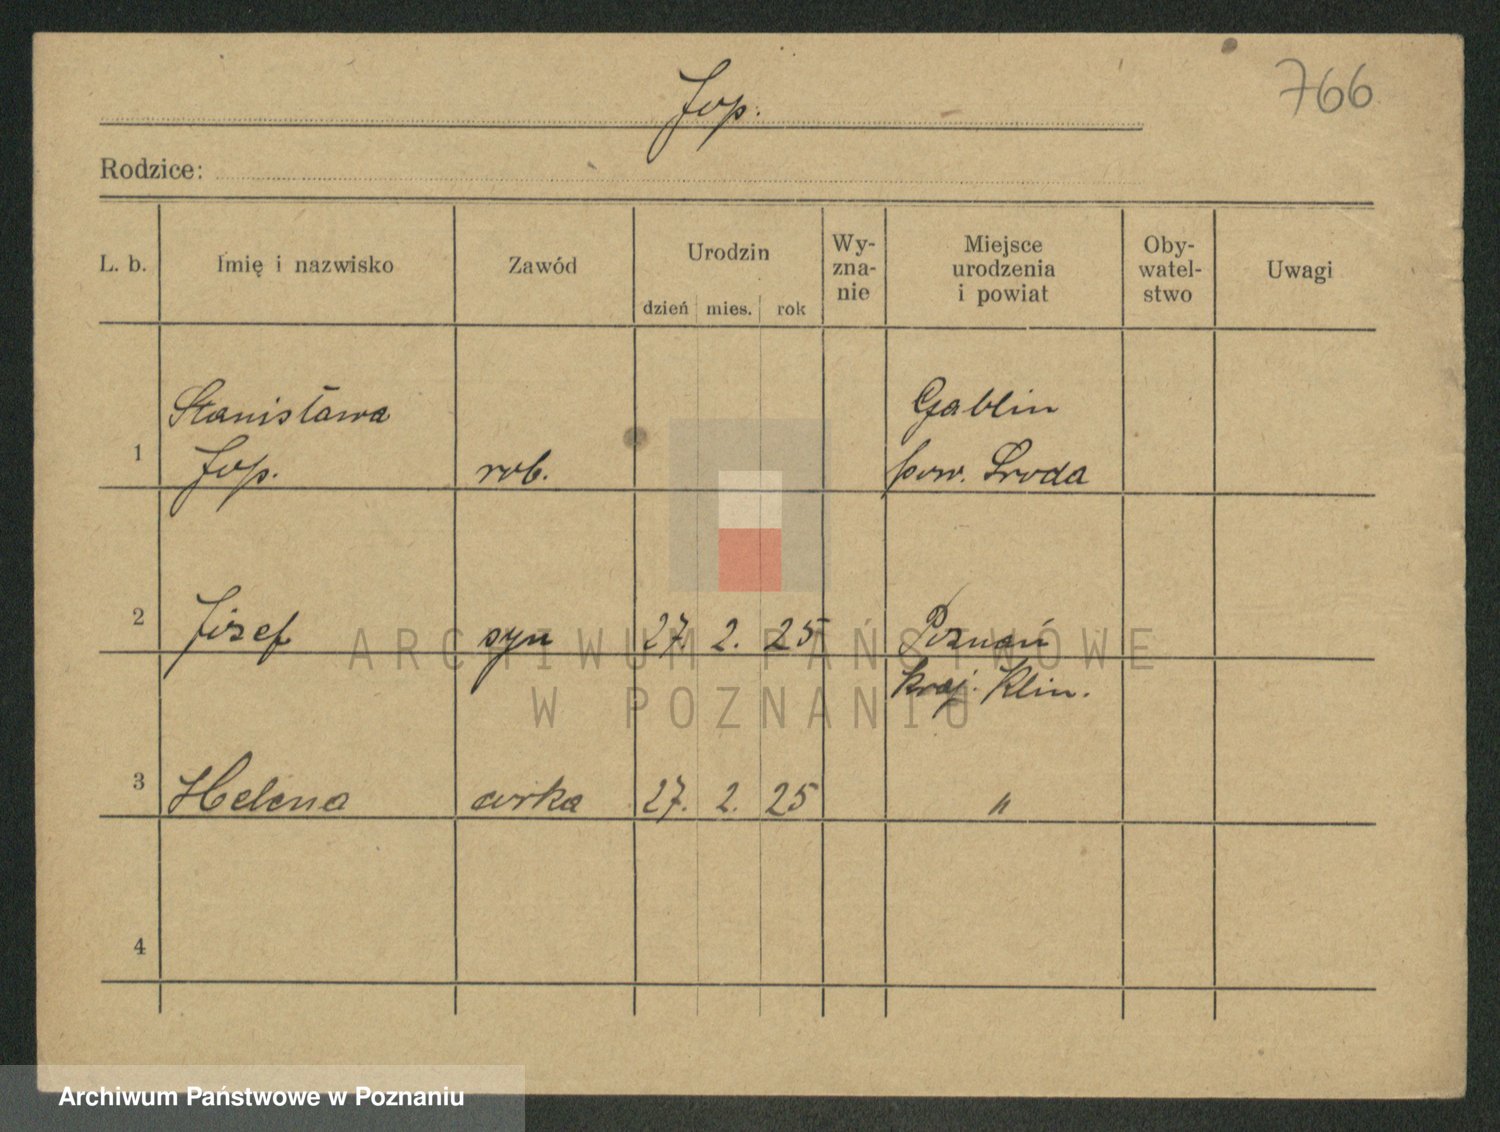 Jop.
766
Rodzice:
L. b.
Imię i nazwisko
Zawód
Urodzin
dzień mies. rok
Wy-
zna-
nie
Miejsce
urodzenia
i powiat
Oby-
watel-
stwo
Uwagi
Stanisława Gablin
1 Jop. rob. pow. Środa
2 Józef syn 27. 2. 25 Poznań
kraj. Klin.
3 Helena córka 27. 2. 25 "
4
ARCHIWUM PAŃSTWOWE
W POZNANIU
Archiwum Państwowe w Poznaniu